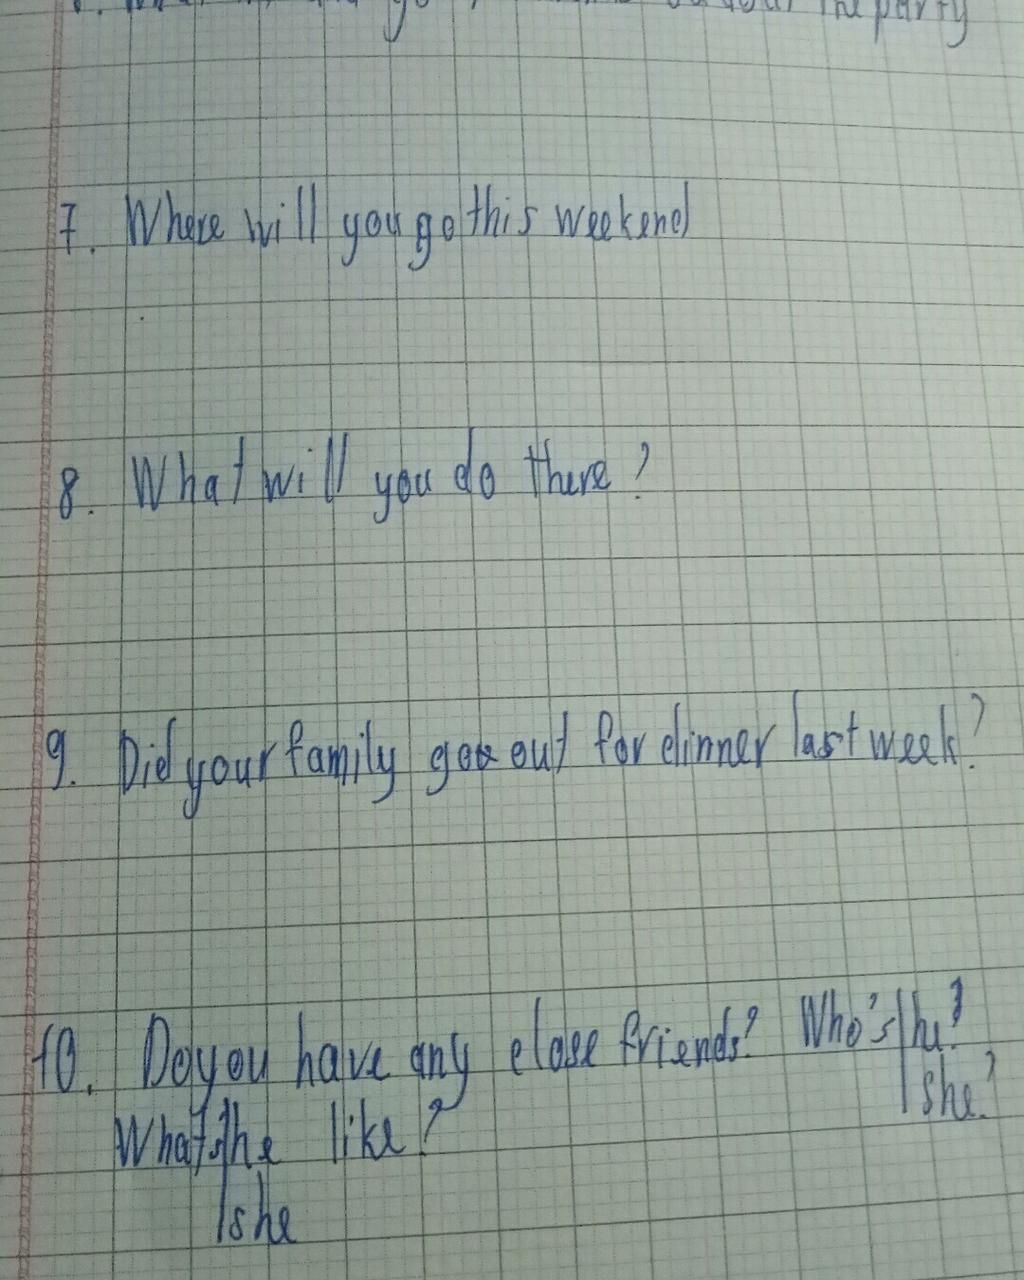 the party
7. Where will you go this weekend
8. What will you do there?
9. Did your family go out for dinner last week?
10. Do you have any close friends? Who's he?
she?
What's he like?
she